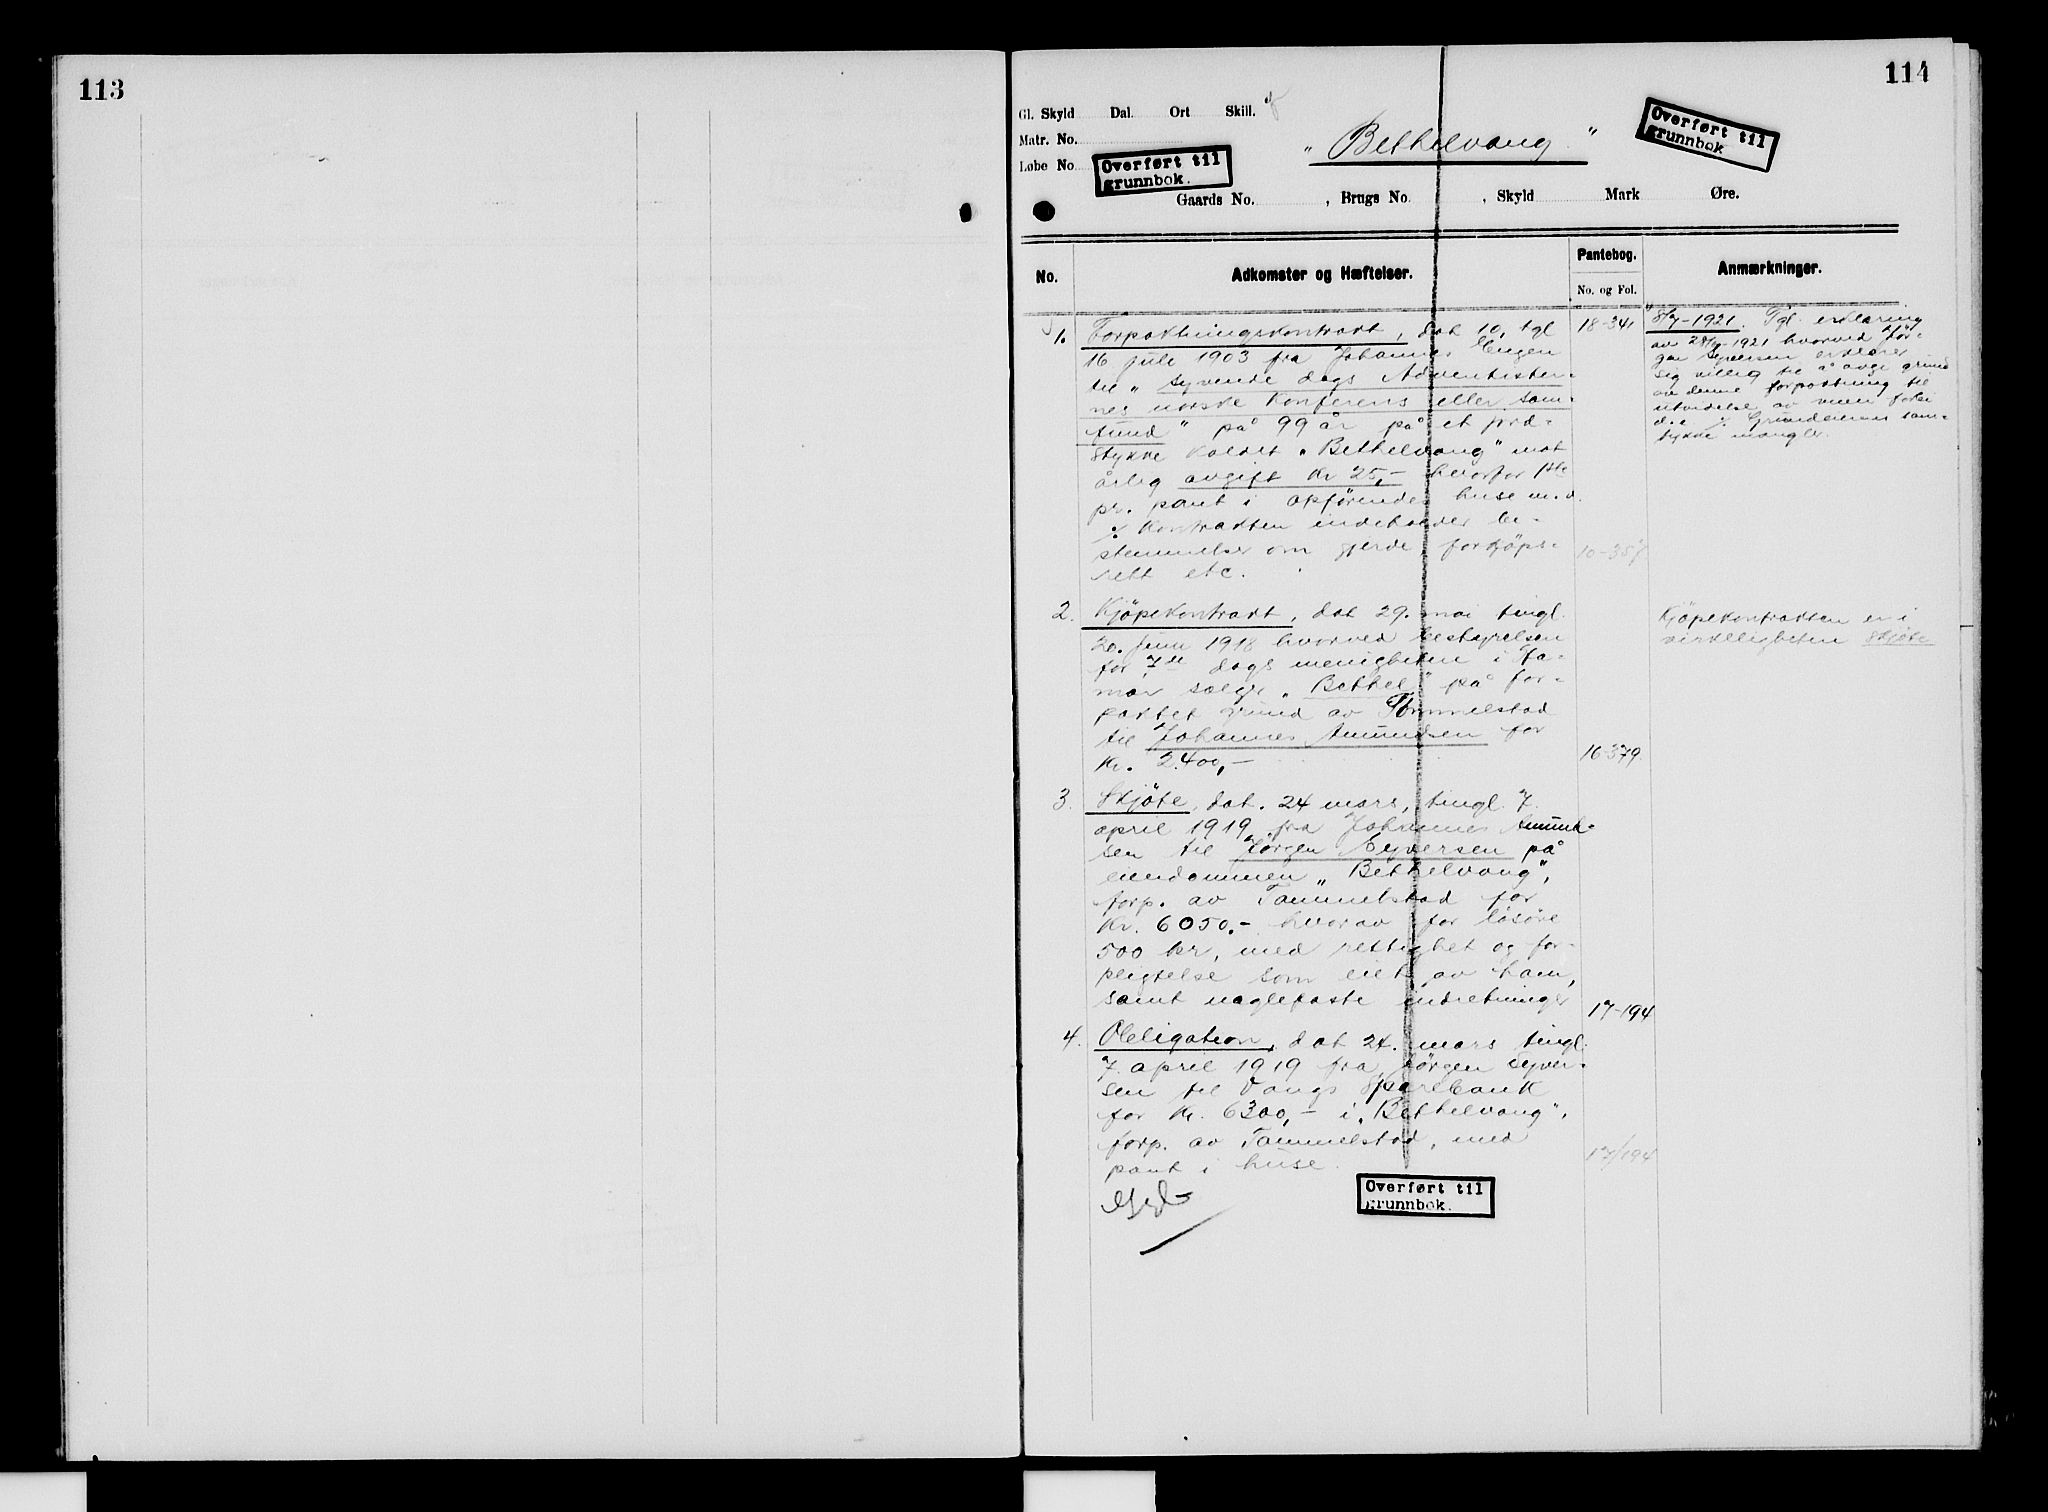 113
114
Gl. Skyld Dal. Ort Skill.
Matr. No.
Løbe No.
Overført til
grunnbok.
"Bethelvang"
Overført til
grunnbok
Gaards No. , Brugs No. , Skyld Mark Øre.
No.
Adkomster og Hæftelser.
Pantebog.
No. og Fol.
Anmærkninger.
1. Forpaktningskontrakt, dat 10, tgl
16 juli 1903 fra Johannes Engen
til "Syvende dags Adventister-
nes norske Konferens eller sam-
fund" på 99 år på et jord-
stykke kaldet "Bethelvang" mot
årlig avgift kr 25,- hvorfor 1ste
pr. pant i opførendes huse m.v.
Kontrakten indeholder be-
stemmelser om gjerde, forkjöps-
rett etc.
18-341
10-357
8/7-1921. Tgl. erklæring
av 28/4-1921 hvorved Jör-
gen Syversen erklærer
sig villig til å avgi grund
av denne forpaktning til
utvidelse av veien forbi
d.e. Grundeierens sam-
tykke mangler.
2. Kjöpekontrakt, dat 29. mai tingl.
20. juni 1918 hvorved bestyrelsen
for 7de dags menigheten i Ha-
mar sælger "Bethel" på for-
paktet grund av Tommelstad
til Johannes Amundsen for
Kr. 2400,-
16-379
Kjöpekontrakten er i
virkeligheten Skjöte
3. Skjöte, dat. 24 mars, tingl. 7.
april 1919 fra Johannes Amund-
sen til Jörgen Syversen på
eiendommen "Bethelvang",
forp. av Tommelstad for
Kr. 6050.- hvorav for lösöre
500 kr, med rettighet og for-
pligtelse som eiet av ham,
samt naglefaste indretninger
17-194
4. Obligation, dat 24. mars tingl.
7. april 1919 fra Jörgen Syver-
sen til Vangs Sparebank
for Kr. 6300,- i "Bethelvang",
forp. av Tommelstad, med
pant i huse.
17/194
Overført til
grunnbok.